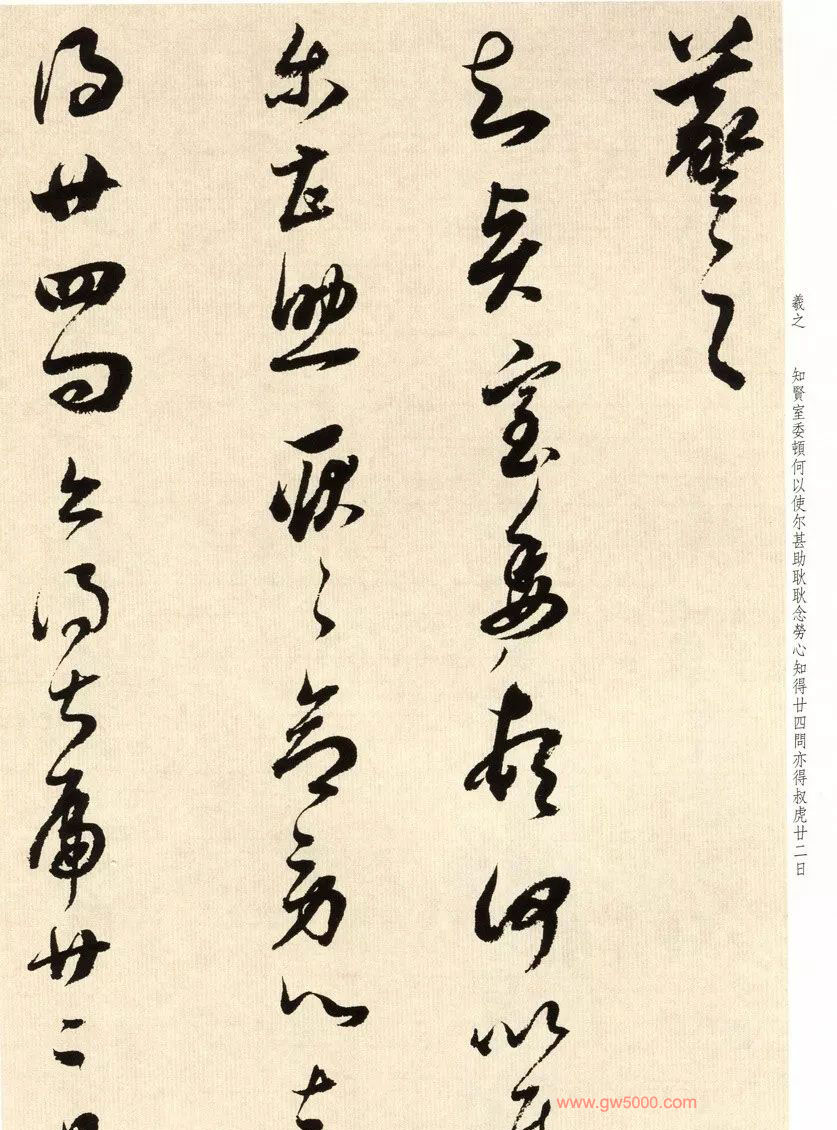 羲之
知賢室委頓何以使
尔甚助耿耿念勞心知
得廿四問亦得叔虎廿二日
羲之 知賢室委頓何以使尔甚助耿耿念勞心知得廿四問亦得叔虎廿二日
www.gw5000.com